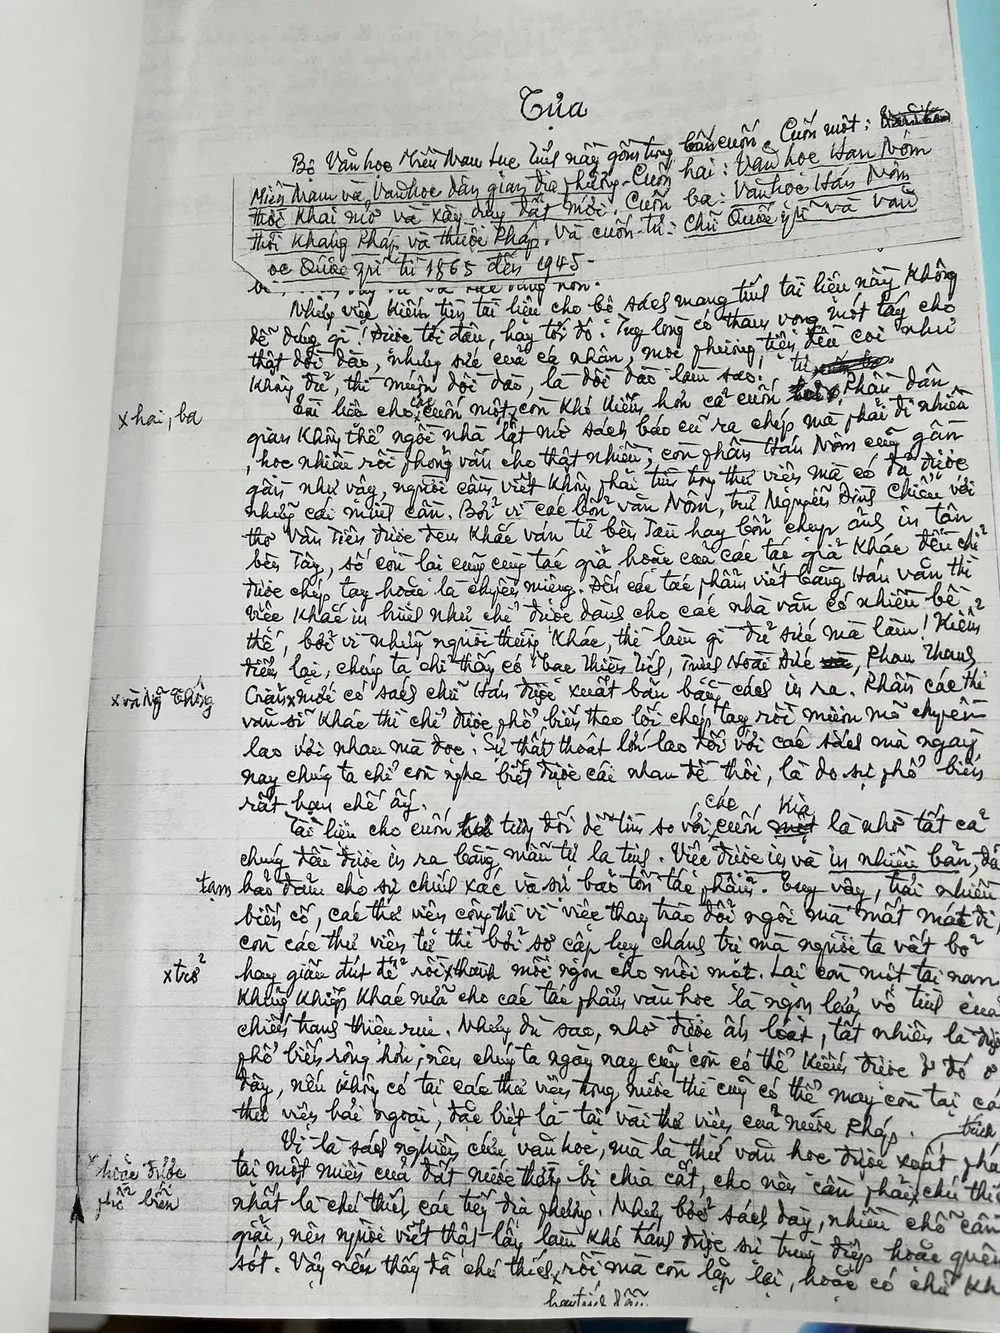 Tựa
Bộ Văn học Miền Nam Lục Tỉnh này gồm trong bốn cuốn. Cuốn một:
Miền Nam và Văn học dân gian địa phương. Cuốn hai: Văn học Hán Nôm
thời khai mở và xây dựng đất mới. Cuốn ba: Văn học Hán Nôm
thời kháng Pháp và thuộc Pháp. Và cuốn tư: Chữ Quốc ngữ và văn
ọc Quốc ngữ từ 1865 đến 1945.
Nhưng việc kiếm tìm tài liệu cho bộ sách mang tính tài liệu này không
dễ dúng gì! Được tới đâu, hay tới đó. Tuy lòng có tham vọng một tay cho
thật dồi dào, nhưng sức của cá nhân, mọi phương tiện đều coi như
không đủ, thì muốn dồi dào, là dồi dào làm sao!
Tài liệu cho cuốn một còn khó kiếm hơn cả cuốn tư. Phần dân
x hai, ba
gian không thể ngồi nhà lật mở sách báo cũ ra chép mà phải đi nhiều
, học nhiều rồi phỏng vấn cho thật nhiều; còn phần Hán Nôm cũng gần
gần như vậy, người cầm viết không phải tìm trong thư viện mà có đủ được
những cái mình cần. Bởi vì các bổn văn Nôm, trừ Nguyễn Đình Chiểu với
thơ Vân Tiên được đem khắc ván từ bên Tàu hay bổn chép ảnh in tận
bên Tây, số còn lại cùng tác giả hoặc của các tác giả khác đều chỉ
được chép tay hoặc là chuyền miệng. Đến các tác phẩm viết bằng Hán văn thì
việc khắc in hình như chỉ được dành cho các nhà văn có nhiều bề
thế, bởi vì những người thường khác, thì làm gì đủ sức mà làm! Kiểm
điểm lại, chúng ta chỉ thấy có Mạc Thiên Tích, Trịnh Hoài Đức, Phan Thanh
x và Ng Thông
Giản x mới có sách chữ Hán được xuất bản bằng cách in ra. Phần các thi
văn sĩ khác thì chỉ được phổ biến theo lối chép tay rồi mượn mõ chuyền
lao với nhau mà đọc. Sự thất thoát lớn lao đối với các sách mà ngày
nay chúng ta chỉ còn nghe biết được cái nhan đề thôi, là do sự phổ biến
rất hạn chế ấy.
Tài liệu cho cuốn tư tương đối dễ tìm so với các cuốn kia là nhờ tất cả
chúng đều được in ra bằng mẫu tự la tinh. Việc được in và in nhiều bản, đã
tạm bảo đảm cho sự chính xác và sự bảo tồn tác phẩm. Tuy vậy, trải nhiều
biến cố, các thư viện công thì vì việc thay tráo đổi ngôi mà mất mát đi,
còn các thư viện tư thì bởi sợ cập huy cháng trì mà người ta vất bỏ
x trở
hay giấu đút để rồi x thành mồi ngon cho mối mọt. Lại còn một tai nạn
khủng khiếp khác nữa cho các tác phẩm văn học là ngọn lửa vô tình của
chiến tranh thiêu rụi. Nhưng dù sao, nhờ được ấn loát, tất nhiên là được
phổ biến rộng hơn, nên chúng ta ngày nay cũng còn có thể kiếm được ở đó ở
đây, nếu không có tại các thư viện trong nước thì cũng có thể may còn tại các
thư viện hải ngoại, đặc biệt là tại vài thư viện của nước Pháp.
Vì là sách nghiên cứu văn học, mà là thứ văn học được xuất phát
x hoặc được
phổ biến
tại một miền của đất nước thường bị chia cắt, cho nên cần phải chú thích
nhất là chú thích các tiếng địa phương. Nhưng bởi sách dày, nhiều chỗ cần
giải, nên người viết thật lấy làm khó tránh được sự trùng điệp hoặc quên
sót. Vậy nếu thấy đã chú thích x rồi mà còn lập lại, hoặc có chữ kh